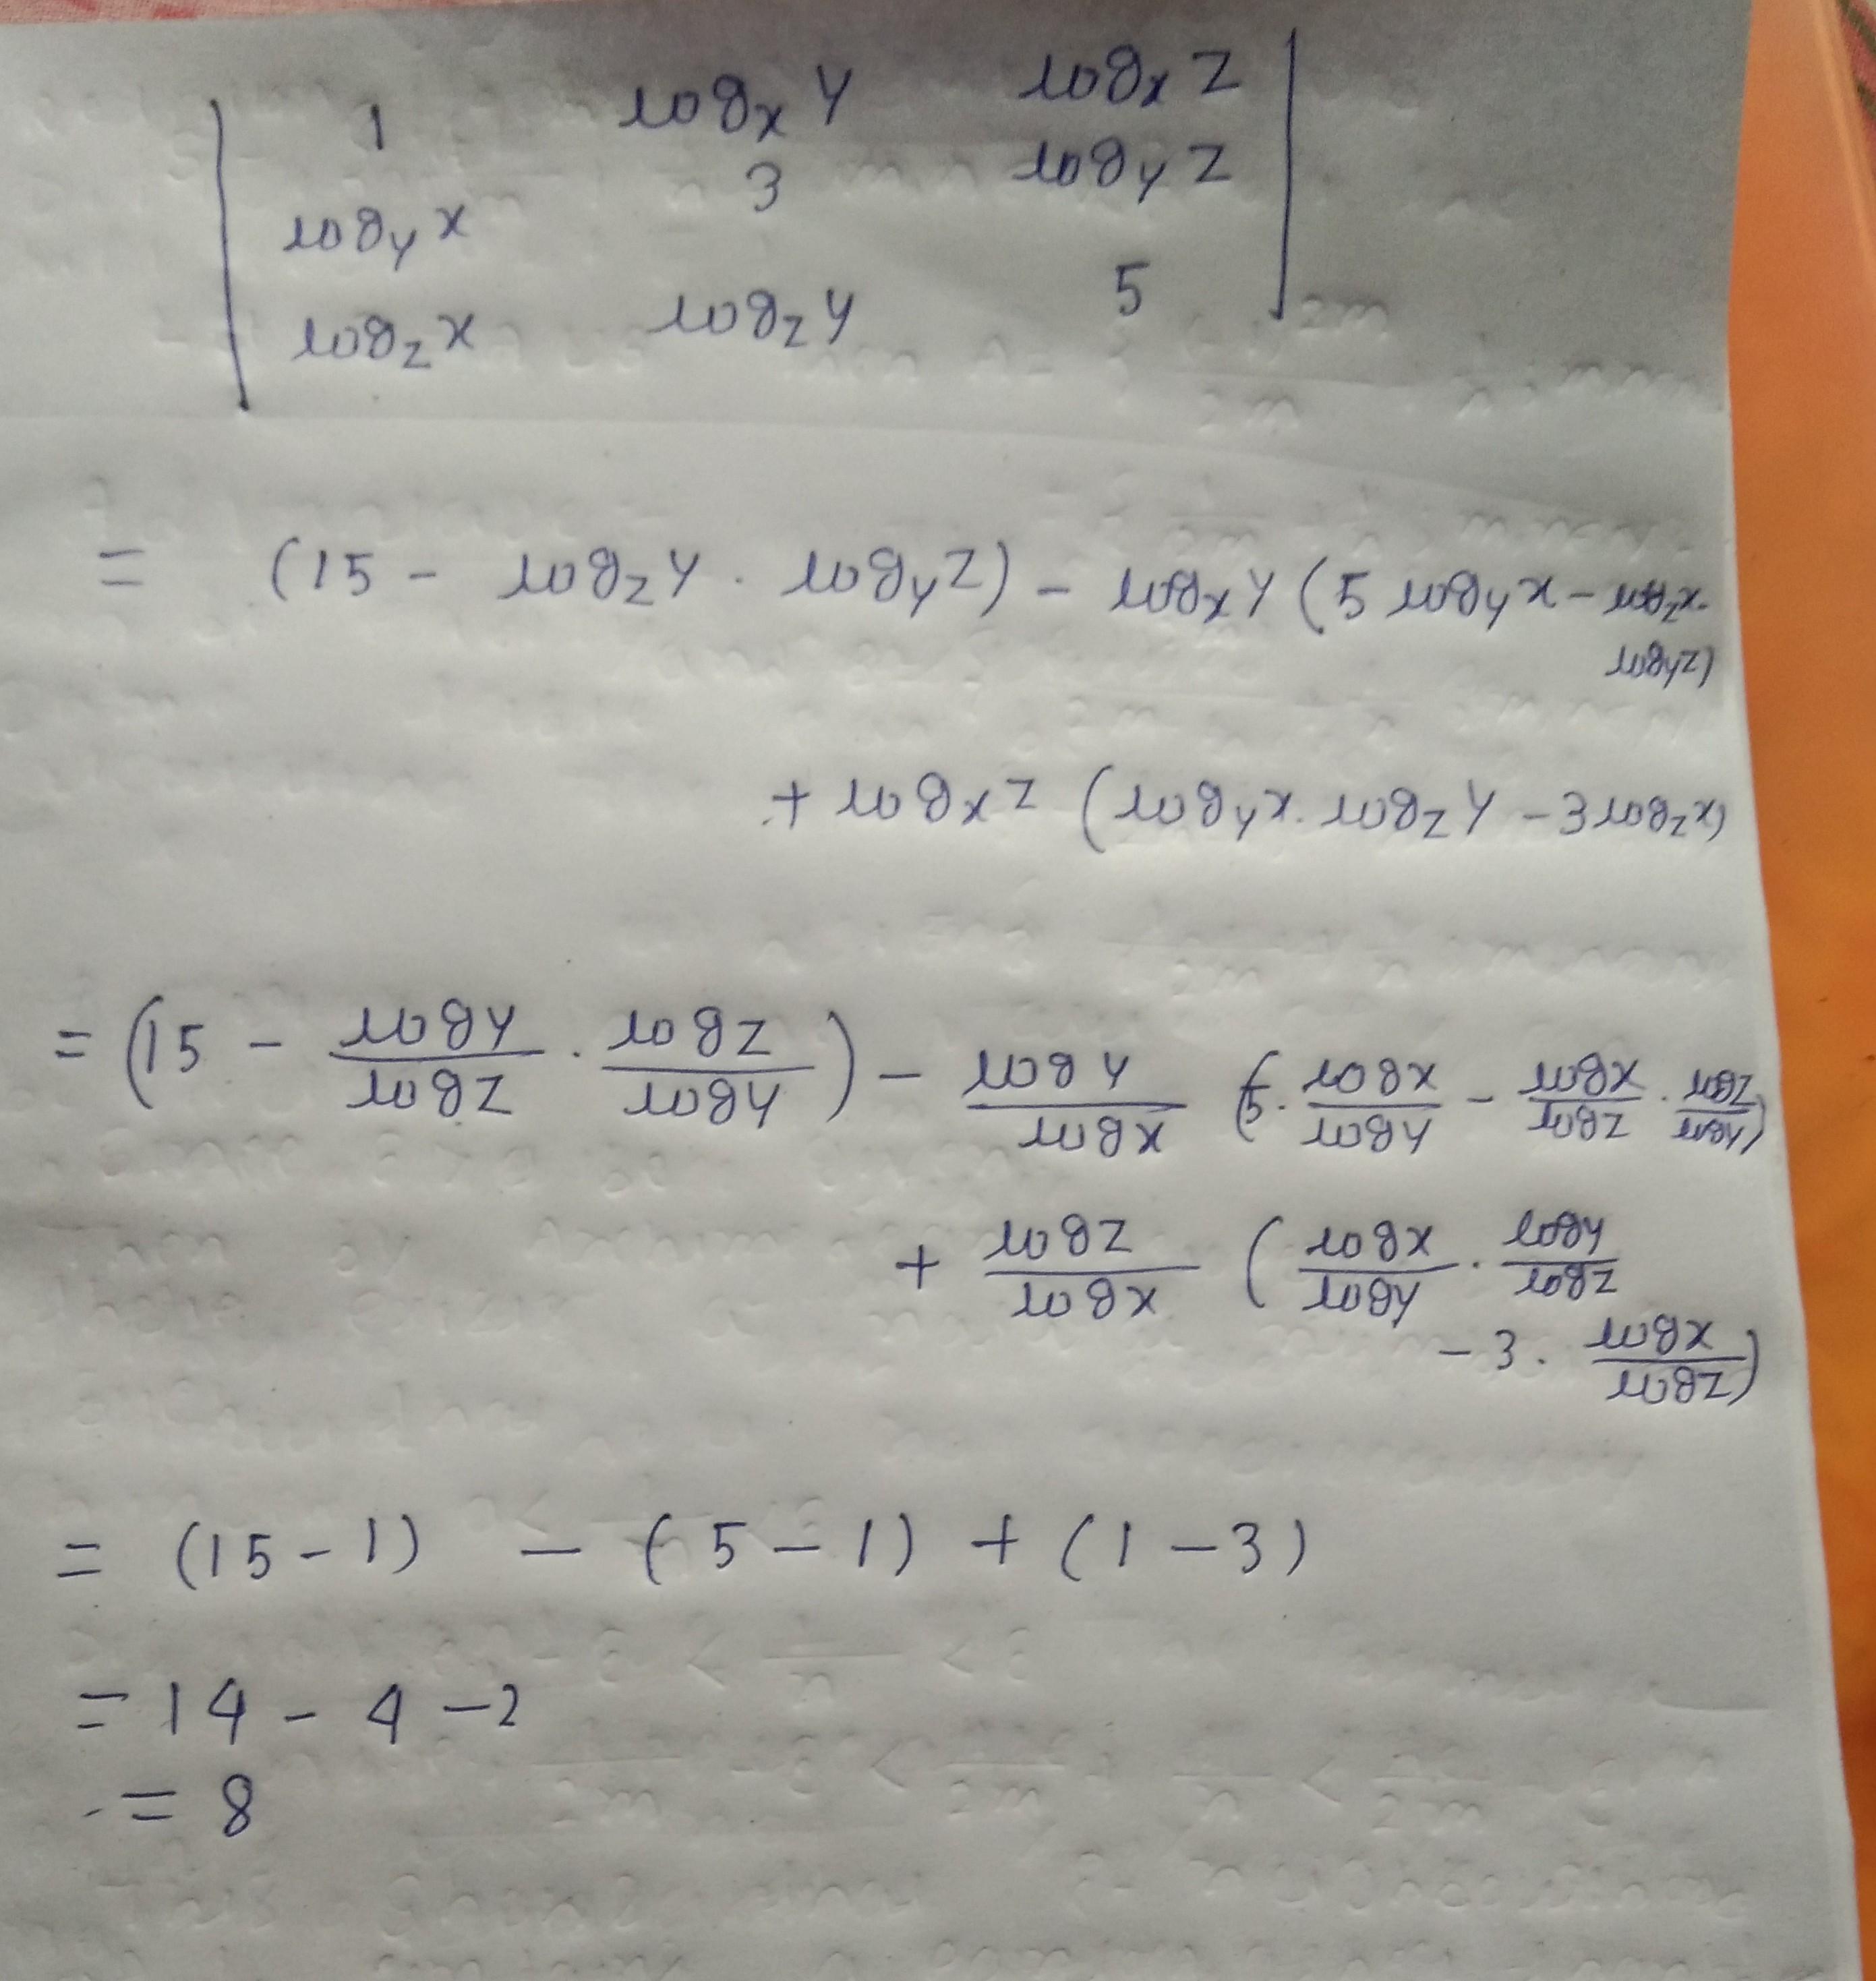 | 1 log_x y log_x z |
| log_y x 3 log_y z |
| log_z x log_z y 5 |
= (15 - log_z y . log_y z) - log_x y (5 log_y x - log_z x . log_y z)
+ log_x z (log_y x . log_z y - 3 log_z x)
= (15 - log y / log z . log z / log y) - log y / log x (5 . log x / log y - log x / log z . log z / log y)
+ log z / log x (log x / log y . log y / log z
- 3 . log x / log z)
= (15 - 1) - (5 - 1) + (1 - 3)
= 14 - 4 - 2
= 8